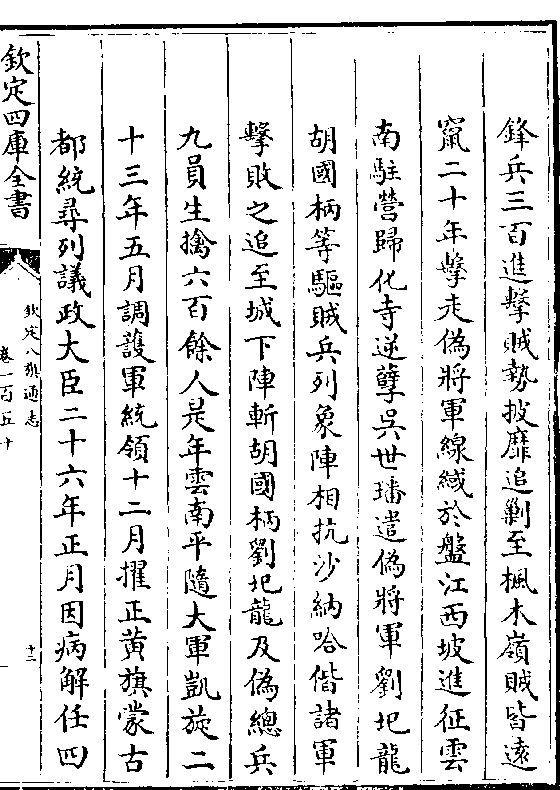 鋒兵三百進擊賊勢披靡追剿至楓木嶺賊皆遠
竄二十年擊走偽將軍線緎於盤江西坡進征雲
南駐營歸化寺逆孽吳世璠遣偽將軍劉圯龍
胡國柄等驅賊兵列象陣相抗沙納哈偕諸軍
擊敗之追至城下陣斬胡國柄劉圯龍及偽總兵
九員生擒六百餘人是年雲南平隨大軍凱旋二
十三年五月調護軍統領十二月擢正黃旗蒙古
都統尋列議政大臣二十六年正月因病解任四
欽定四庫全書
欽定八旗通志
卷一百五十
十二